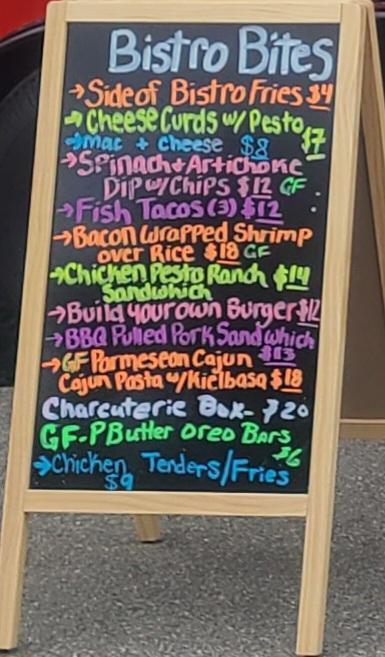 Bistro Bites
→Side of Bistro Fries $4
→Cheese Curds w/ Pesto $7
→Mac + Cheese $8
→Spinach + Artichoke
Dip w/ Chips $12 GF
→Fish Tacos (3) $12
→Bacon Wrapped Shrimp
over Rice $18 GF
→Chicken Pesto Ranch $14
Sandwhich
→Build your own Burger $12
→BBQ Pulled Pork Sandwhich
$13
→GF Parmesean Cajun
Cajun Pasta w/Kielbasa $18
Charcuterie Box - $20
GF-PButter Oreo Bars
$6
→Chicken Tenders/Fries
$9